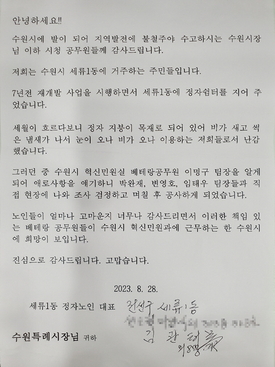 안녕하세요!!
수원시에 발이 되어 지역발전에 불철주야 수고하시는 수원시장
님 이하 시청 공무원들께 감사드립니다.
저희는 수원시 세류1동에 거주하는 주민들입니다.
7년전 재개발 사업을 시행하면서 세류1동에 정자쉼터를 지어 주
었습니다.
세월이 흐르다보니 정자 지붕이 목재로 되어 있어 비가 새고 썩
은 냄새가 나서 눈이 오나 비가 오나 이용하는 저희들로서 난감
했습니다.
그러던 중 수원시 혁신민원실 베테랑공무원 이명구 팀장을 알게
되어 애로사항을 얘기하니 박완재, 변영호, 임태우 팀장들과 직
접 현장에 나와 조사 점검하고 며칠 후 공사하게 되었습니다.
노인들이 얼마나 고마운지 너무나 감사드리면서 이러한 책임 있
는 베테랑 공무원들이 수원시 혁신민원과에 근무하는 한 수원시
에 희망이 보입니다.
진심으로 감사드립니다. 고맙습니다.
2023. 8. 28.
세류1동 정자노인 대표 권선구 세류1동
수원특례시장님 귀하